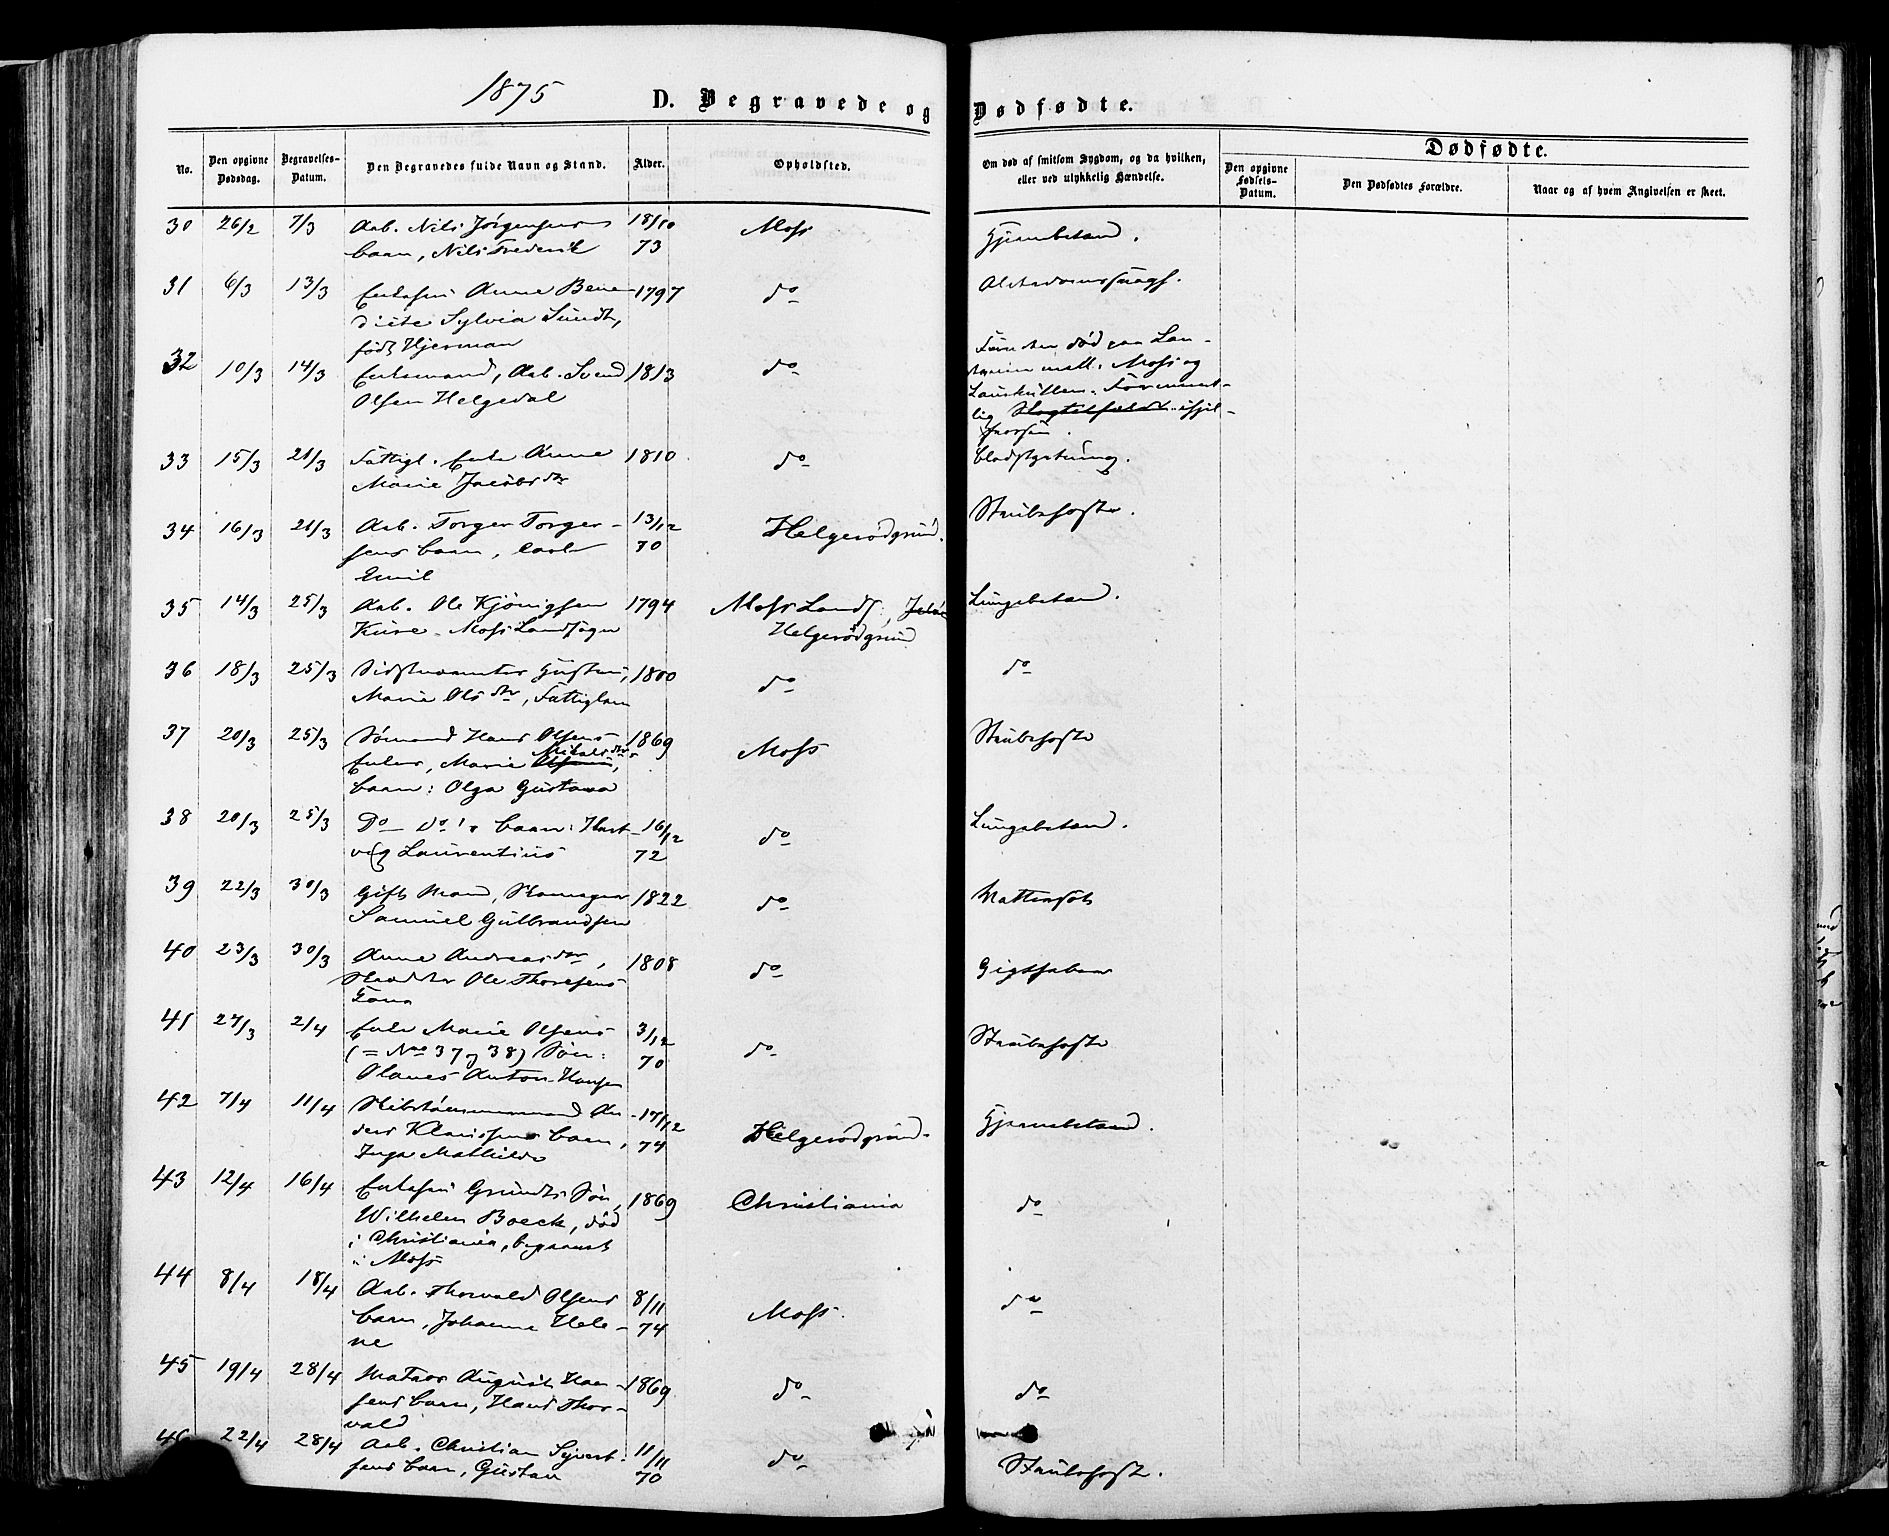 1875
D. Begravede og Dødfødte.
No.
Den opgivne Dødsdag.
Begravelses-Datum.
Den Begravedes fulde Navn og Stand.
Alder.
Opholdsted.
Om død af smitsom Sygdom, og da hvilken, eller ved ulykkelig Hændelse.
Dødfødte.
Den opgivne Fødsels-Datum.
Den Dødfødtes Forældre.
Naar og af hvem Angivelsen er skeet.
30 26/2 7/3 Arb. Nils Jørgensens 18/10 Moss
barn, Nils Frederik 73 Hjernebetænd.
31 6/3 13/3 Enkefru Anne Bene- 1797 do Alderdomssvagh.
dicte Sylvia Sundt,
født Hjerman
32 10/3 14/3 Enkemand, Arb. Svend 1813 do
Olsen Helgedal
Funden død paa Lan-
mell. Moss og
33 15/3 21/3 Fattigl. Enke Anne 1810 do Blodstyrtning.
Marie Jacobsdtr
34 16/3 21/3 Arb. Torger Torger- 13/12 Helgerødgrund. Strubehoste.
sens barn, Carl 70
Emil
35 14/3 25/3 Arb. Ole Kjönigsen 1794 Moss Lands., Jeløe Lungebetænd.
Kure. Moss Landsogn Helgerødgrund
36 18/3 25/3 1800 do do
Marie Olsdtr, Fattiglem
37 20/3 25/3 Sømand Hans Olsens 1869 Moss Strubehoste
Enkes, Marie Olsens,
barn: Olga Gustava
38 20/3 25/3 Do Do's barn: Hart- 16/12 do Lungebetænd.
vig Laurentius 72
39 22/3 30/3 Gift Mand, Skomager 1822 do Vattersot
Samuel Gulbrandsen
40 23/3 30/3 Anne Andreasdtr, 1808 do Gigtfeber
Skrædder Ole Thoresens
Kone
41 27/3 2/4 Enke Marie Olsens 3/12 do Strubehoste
(= No 37 og 38) Søn: 70
Olaves Anton Hansen
42 7/4 11/4 An- 17/12 Helgerødgrund. Hjernebetænd.
ders Klaussens barn, 74
Inga Mathilde
43 12/4 16/4 Enkefru Grundts Søn, 1869 Christiania do
Wilhelm Boeck, død
i Christiania, begravet
i Moss
44 8/4 18/4 Arb. Thorvald Olsens 8/11 Moss. do
barn, Johanne Hele- 74
ne
45 19/4 28/4 Matros August Han- 1869 do do
sens barn, Hans Thor-
vald
46 22/4 28/4 Arb. Christian Syvert- 11/11 do Strubehoste.
sens barn, Gustav 70